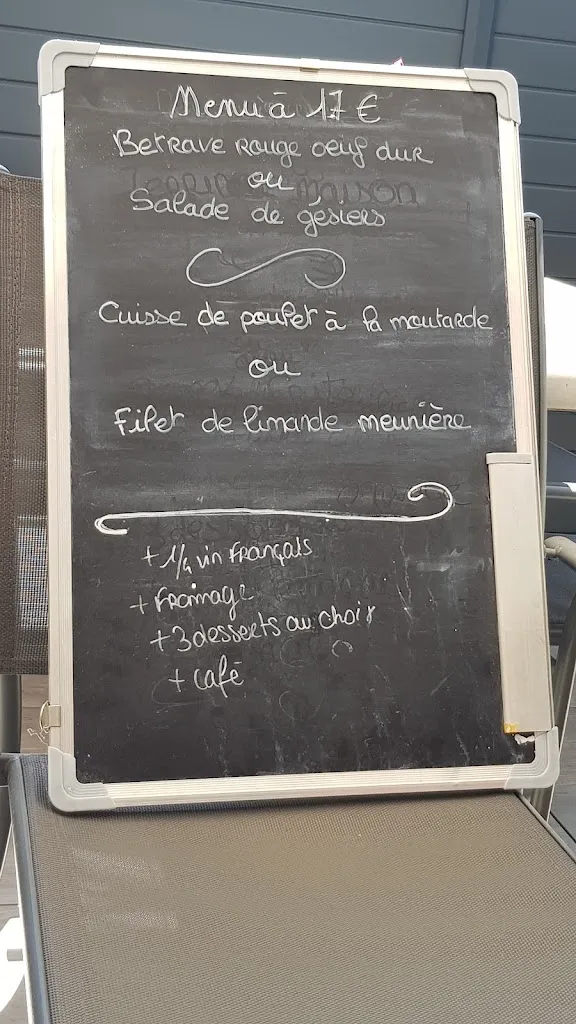 Menu à 17 €
Betrave rouge oeuf dur
ou
Salade de gésiers
Cuisse de poulet à la moutarde
ou
Filet de limande meunière
+ 1/4 vin Français
+ Fromage
+ 3 desserts au choix
+ café